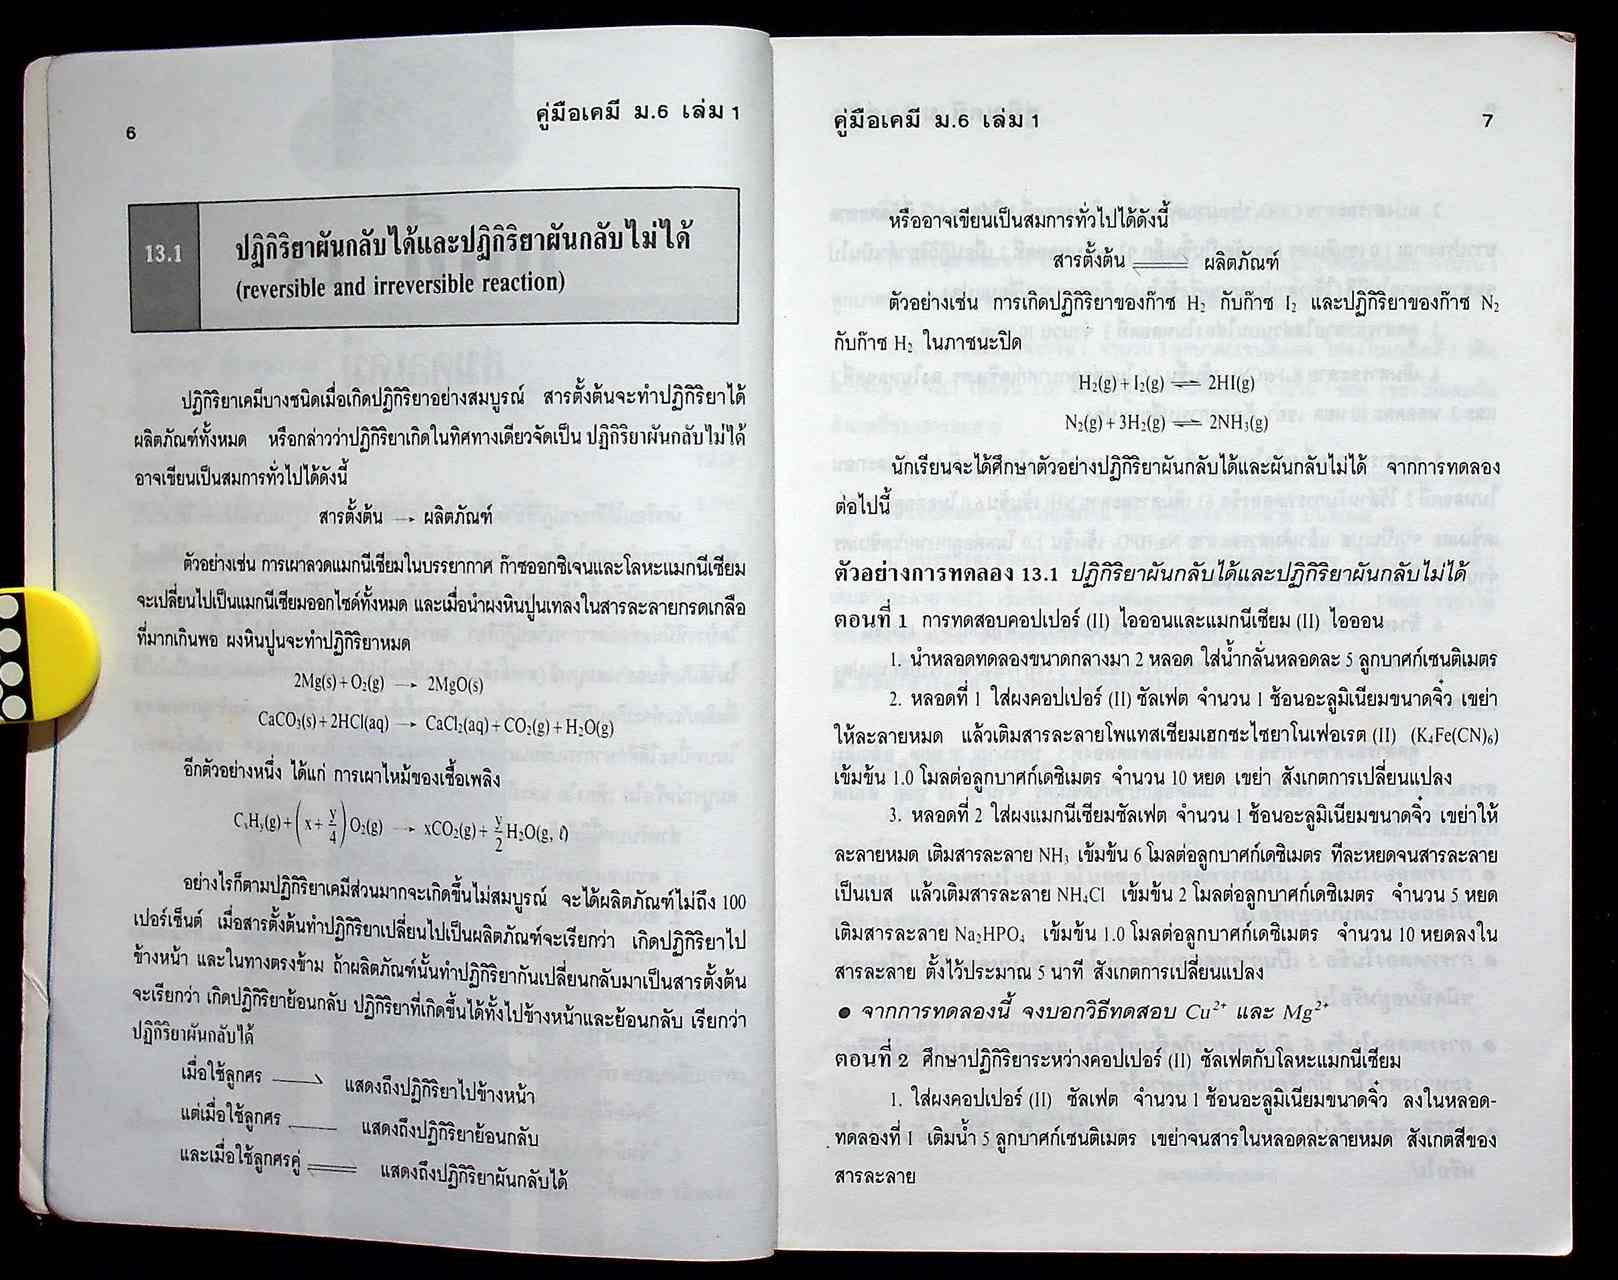 6
คู่มือเคมี ม.6 เล่ม 1
13.1
ปฏิกิริยาผันกลับได้และปฏิกิริยาผันกลับไม่ได้
(reversible and irreversible reaction)
ปฏิกิริยาเคมีบางชนิดเมื่อเกิดปฏิกิริยาอย่างสมบูรณ์ สารตั้งต้นจะทำปฏิกิริยาได้
ผลิตภัณฑ์ทั้งหมด หรือกล่าวว่าปฏิกิริยาเกิดในทิศทางเดียวจัดเป็น ปฏิกิริยาผันกลับไม่ได้
อาจเขียนเป็นสมการทั่วไปได้ดังนี้
สารตั้งต้น → ผลิตภัณฑ์
ตัวอย่างเช่น การเผาลวดแมกนีเซียมในบรรยากาศ ก๊าซออกซิเจนและโลหะแมกนีเซียม
จะเปลี่ยนไปเป็นแมกนีเซียมออกไซด์ทั้งหมด และเมื่อนำผงหินปูนเทลงในสารละลายกรดเกลือ
ที่มากเกินพอ ผงหินปูนจะทำปฏิกิริยาหมด
2Mg(s) + O₂(g) → 2MgO(s)
CaCO₃(s) + 2HCl(aq) → CaCl₂(aq) + CO₂(g) + H₂O(g)
อีกตัวอย่างหนึ่ง ได้แก่ การเผาไหม้ของเชื้อเพลิง
CₓHᵧ(g) + (x + y/4) O₂(g) → xCO₂(g) + y/2 H₂O(g, l)
อย่างไรก็ตามปฏิกิริยาเคมีส่วนมากจะเกิดขึ้นไม่สมบูรณ์ จะได้ผลิตภัณฑ์ไม่ถึง 100
เปอร์เซ็นต์ เมื่อสารตั้งต้นทำปฏิกิริยาเปลี่ยนไปเป็นผลิตภัณฑ์จะเรียกว่า เกิดปฏิกิริยาไป
ข้างหน้า และในทางตรงข้าม ถ้าผลิตภัณฑ์นั้นทำปฏิกิริยากันเปลี่ยนกลับมาเป็นสารตั้งต้น
จะเรียกว่า เกิดปฏิกิริยาย้อนกลับ ปฏิกิริยาที่เกิดขึ้นได้ทั้งไปข้างหน้าและย้อนกลับ เรียกว่า
ปฏิกิริยาผันกลับได้
เมื่อใช้ลูกศร ⇀ แสดงถึงปฏิกิริยาไปข้างหน้า
แต่เมื่อใช้ลูกศร ↽ แสดงถึงปฏิกิริยาย้อนกลับ
และเมื่อใช้ลูกศรคู่ ⇌ แสดงถึงปฏิกิริยาผันกลับได้
คู่มือเคมี ม.6 เล่ม 1
7
หรืออาจเขียนเป็นสมการทั่วไปได้ดังนี้
สารตั้งต้น ⇌ ผลิตภัณฑ์
ตัวอย่างเช่น การเกิดปฏิกิริยาของก๊าซ H₂ กับก๊าซ I₂ และปฏิกิริยาของก๊าซ N₂
กับก๊าซ H₂ ในภาชนะปิด
H₂(g) + I₂(g) ⇌ 2HI(g)
N₂(g) + 3H₂(g) ⇌ 2NH₃(g)
นักเรียนจะได้ศึกษาตัวอย่างปฏิกิริยาผันกลับได้และผันกลับไม่ได้ จากการทดลอง
ต่อไปนี้
ตัวอย่างการทดลอง 13.1 ปฏิกิริยาผันกลับได้และปฏิกิริยาผันกลับไม่ได้
ตอนที่ 1 การทดสอบคอปเปอร์ (II) ไอออนและแมกนีเซียม (II) ไอออน
1. นำหลอดทดลองขนาดกลางมา 2 หลอด ใส่น้ำกลั่นหลอดละ 5 ลูกบาศก์เซนติเมตร
2. หลอดที่ 1 ใส่ผงคอปเปอร์ (II) ซัลเฟต จำนวน 1 ช้อนอะลูมิเนียมขนาดจิ๋ว เขย่า
ให้ละลายหมด แล้วเติมสารละลายโพแทสเซียมเฮกซะไซยาโนเฟอเรต (II) (K₄Fe(CN)₆)
เข้มข้น 1.0 โมลต่อลูกบาศก์เดซิเมตร จำนวน 10 หยด เขย่า สังเกตการเปลี่ยนแปลง
3. หลอดที่ 2 ใส่ผงแมกนีเซียมซัลเฟต จำนวน 1 ช้อนอะลูมิเนียมขนาดจิ๋ว เขย่าให้
ละลายหมด เติมสารละลาย NH₃ เข้มข้น 6 โมลต่อลูกบาศก์เดซิเมตร ทีละหยดจนสารละลาย
เป็นเบส แล้วเติมสารละลาย NH₄Cl เข้มข้น 2 โมลต่อลูกบาศก์เดซิเมตร จำนวน 5 หยด
เติมสารละลาย Na₂HPO₄ เข้มข้น 1.0 โมลต่อลูกบาศก์เดซิเมตร จำนวน 10 หยดลงใน
สารละลาย ตั้งไว้ประมาณ 5 นาที สังเกตการเปลี่ยนแปลง
● จากการทดลองนี้ จงบอกวิธีทดสอบ Cu²⁺ และ Mg²⁺
ตอนที่ 2 ศึกษาปฏิกิริยาระหว่างคอปเปอร์ (II) ซัลเฟตกับโลหะแมกนีเซียม
1. ใส่ผงคอปเปอร์ (II) ซัลเฟต จำนวน 1 ช้อนอะลูมิเนียมขนาดจิ๋ว ลงในหลอด-
ทดลองที่ 1 เติมน้ำ 5 ลูกบาศก์เซนติเมตร เขย่าจนสารในหลอดละลายหมด สังเกตสีของ
สารละลาย